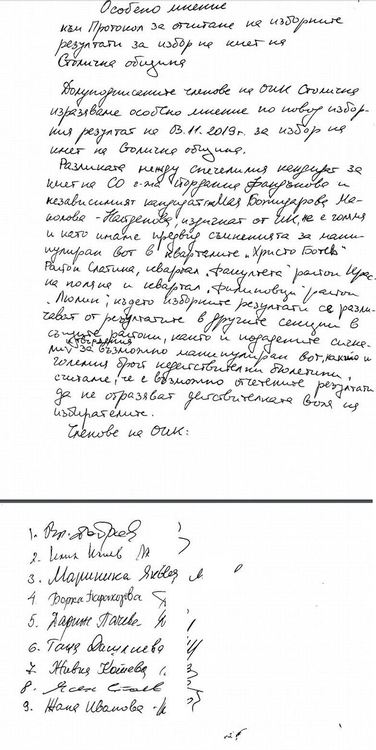 Особено мнение
към Протокол за отчитане на изборните
резултати за избор на кмет на
Столична община
Долуподписаните членове на ОИК Столична
изразяваме особено мнение по повод избор-
ния резултат на 03.11.2019г. за избор на
кмет на Столична община.
Разликата между спечелилия кандидат за
кмет на СО г-жа Йорданка Фандъкова и
независимият кандидат Мая Божидарова Ма-
нолова - Найденова, излъчена от ИК, не е голяма
и като имаме предвид съмненията за мани-
пулиран вот в кварталите "Христо Ботев"
Район Слатина, квартал "Факултета" район Крас-
на поляна и квартал "Филиповци" район
"Люлин", където изборните резултати са разли-
чават от резултатите в другите секции в
същите райони, както и подадените сигна-
ли за възможно манипулиран вот, както и
големия брой недействителни бюлетини,
считаме, че е възможно отчетените резултати
да не отразяват действителната воля на
избирателите.
Членове на ОИК:
1.
2. Илия Илиев
3. Мариника Янкова
4. Борка
5. Дарин Пачева
6. Таня Данаилова
7. Живка Костева
8. Ясен
9. Жана Иванова